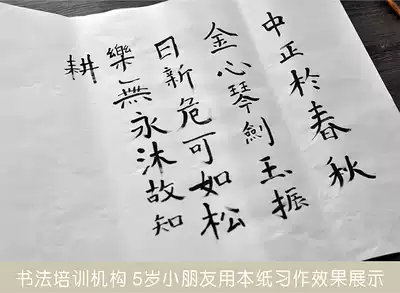 中正於春秋
金心琴劍玉振
日新危可如松
樂無永沐故知
耕
书法培训机构 5岁小朋友用本纸习作效果展示